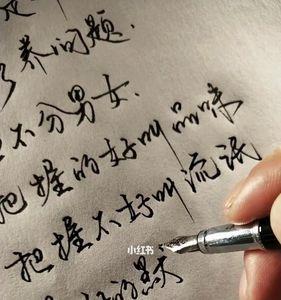 养问题.
不分男女.
把握的好叫品味
把握不好叫流氓
小红书
的默